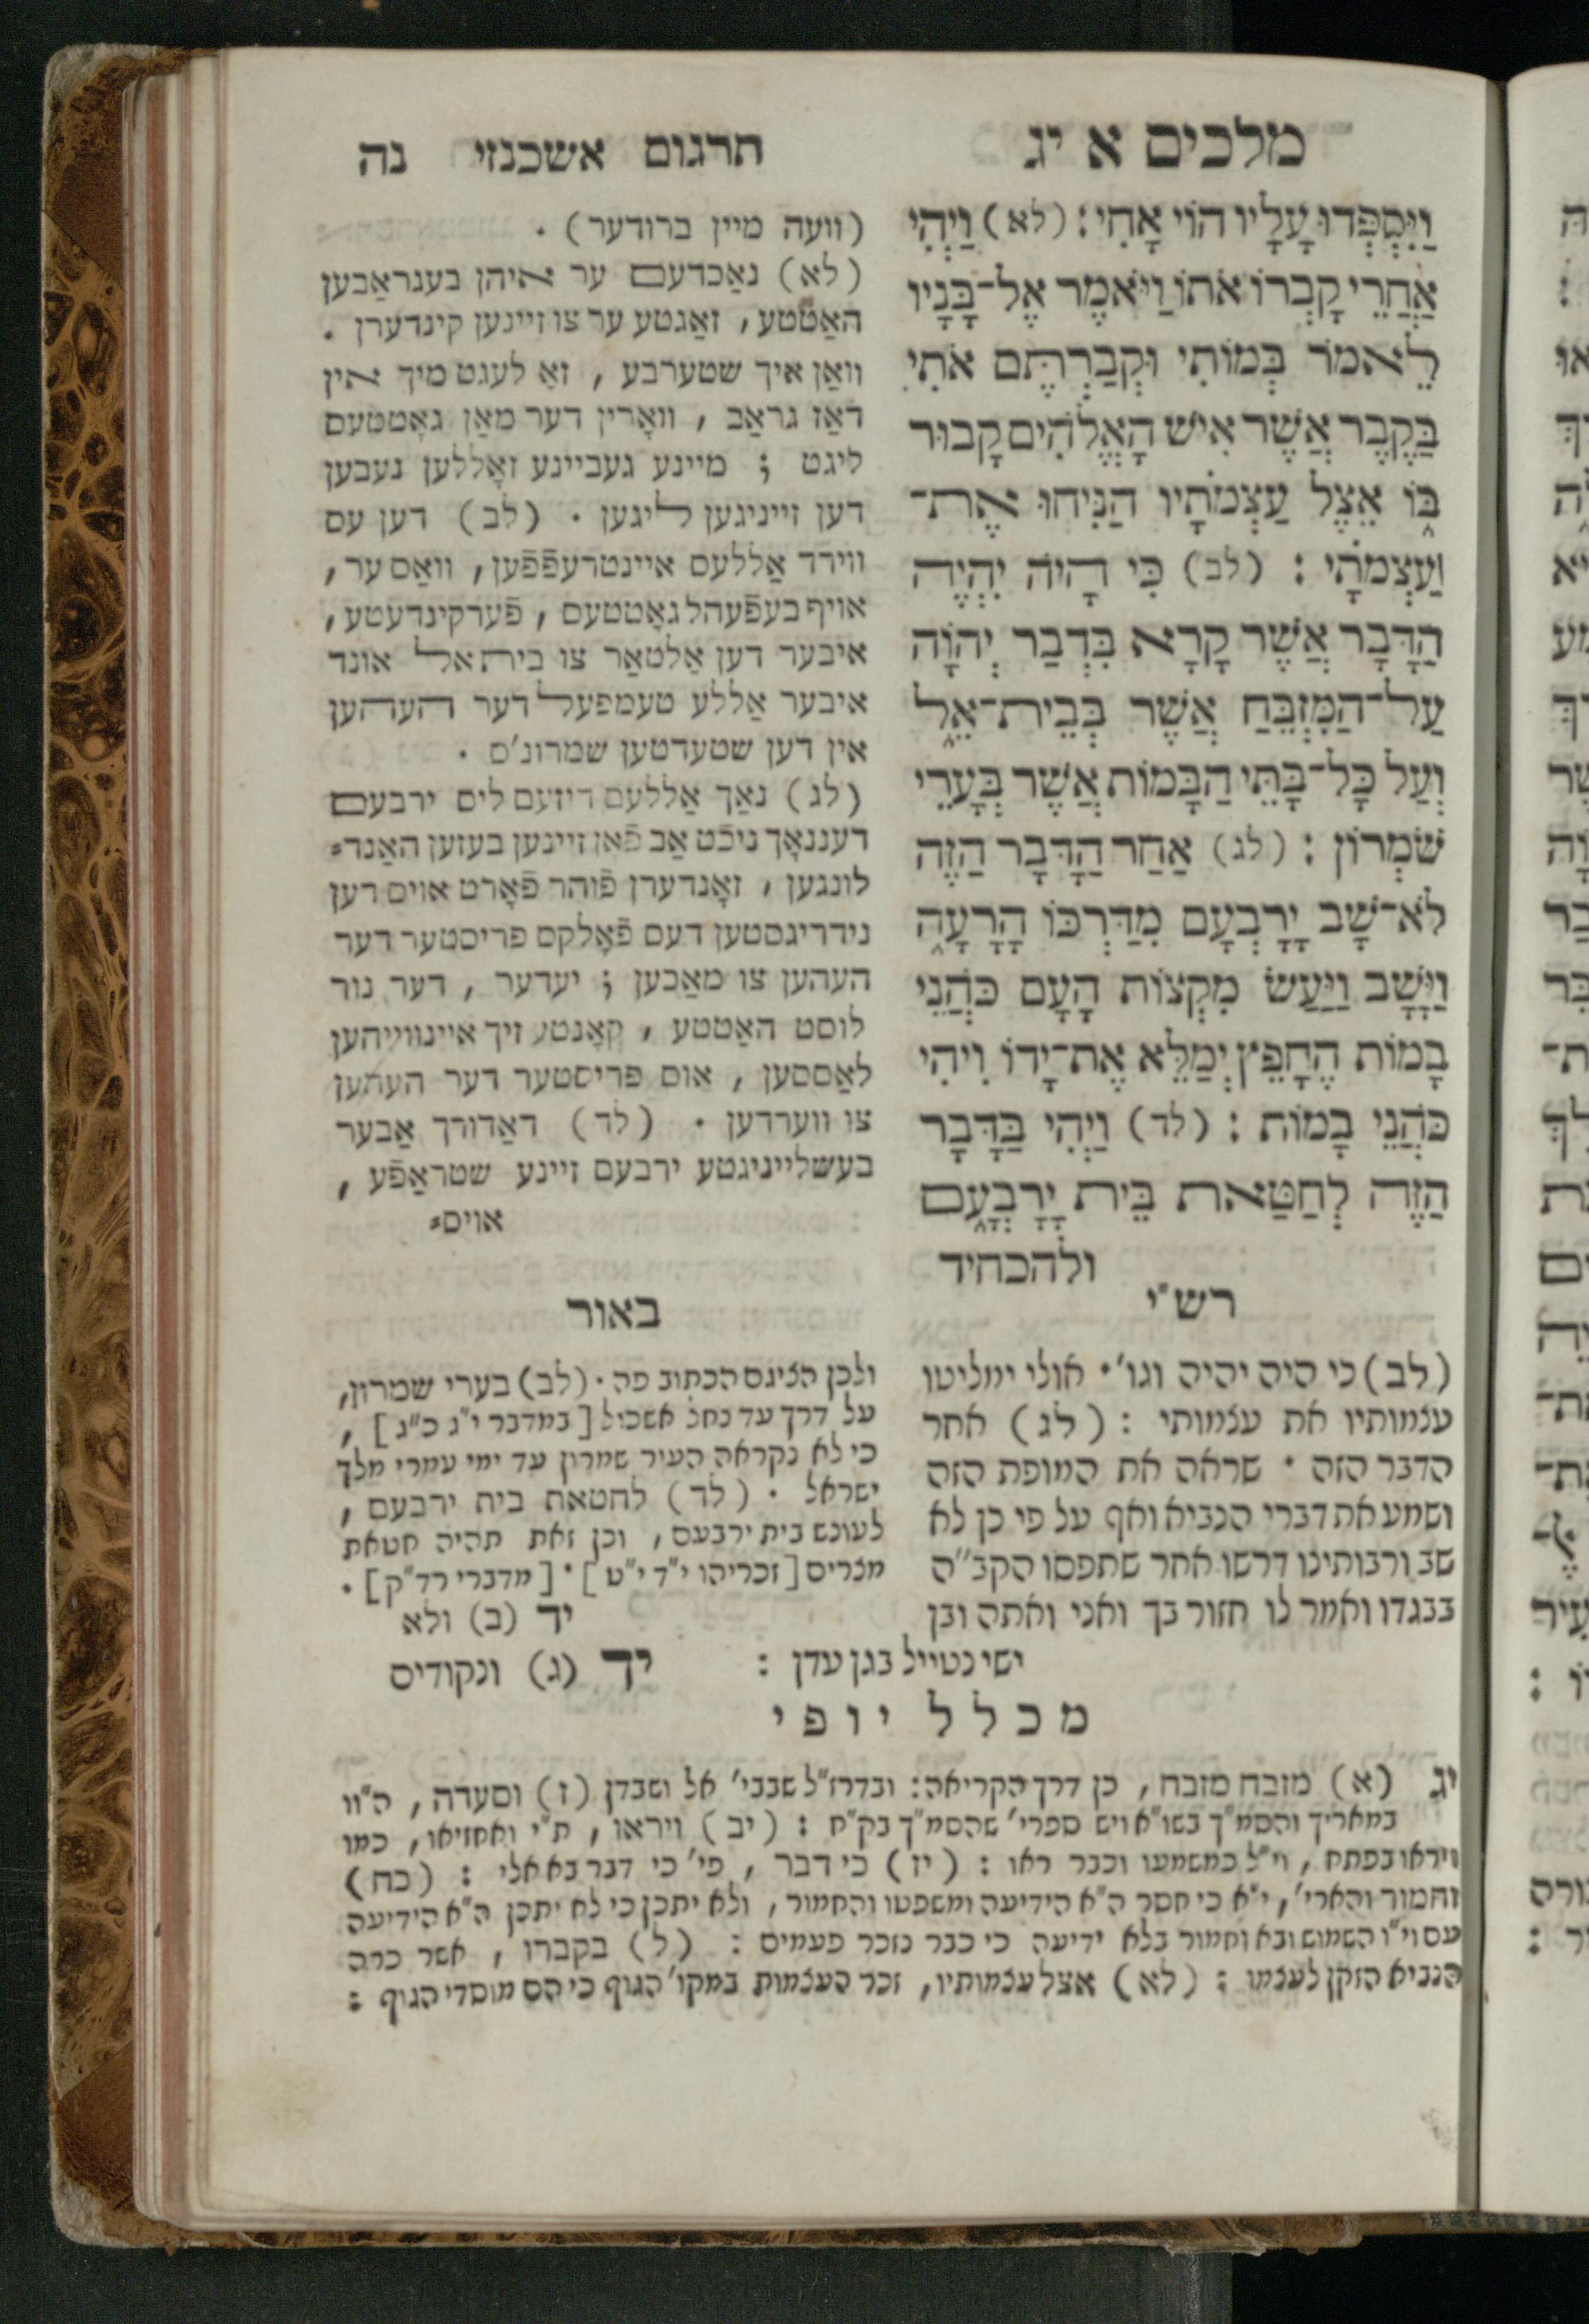 מלכים א יג
וַיִּסְפְּדוּ עָלָיו הוֹי אָחִי: (לא) וַיְהִי
אַחֲרֵי קָבְרוֹ אֹתוֹ וַיֹּאמֶר אֶל־בָּנָיו
לֵאמֹר בְּמוֹתִי וּקְבַרְתֶּם אֹתִי
בַּקֶּבֶר אֲשֶׁר אִישׁ הָאֱלֹהִים קָבוּר
בּוֹ אֵצֶל עַצְמֹתָיו הַנִּיחוּ אֶת־
עַצְמֹתָי: (לב) כִּי הָיֹה יִהְיֶה
הַדָּבָר אֲשֶׁר קָרָא בִּדְבַר יְהוָֹה
עַל־הַמִּזְבֵּחַ אֲשֶׁר בְּבֵית־אֵל
וְעַל כָּל־בָּתֵּי הַבָּמוֹת אֲשֶׁר בְּעָרֵי
שֹׁמְרוֹן: (לג) אַחַר הַדָּבָר הַזֶּה
לֹא־שָׁב יָרָבְעָם מִדַּרְכּוֹ הָרָעָה
וַיָּשָׁב וַיַּעַשׂ מִקְצוֹת הָעָם כֹּהֲנֵי
בָמוֹת הֶחָפֵץ יְמַלֵּא אֶת־יָדוֹ וִיהִי
כֹּהֲנֵי בָמוֹת: (לד) וַיְהִי בַּדָּבָר
הַזֶּה לְחַטַּאת בֵּית יָרָבְעָם
ולהכחיד
תרגום אשכנזי נה
(וועה מיין ברודער).
(לא) נאַכדעם ער איהן בעגראַבען
האַטטע, זאַגטע ער צו זיינען קינדערן.
וואַן איך שטערבע, זאָ לעגט מיך אין
דאַז גראַב, וואָרין דער מאַן גאָטטעס
ליגט; מיינע געביינע זאָללען נעבען
דען זייניגען ליגען. (לב) דען עס
ווירד אַללעס איינטרעפֿפֿען, וואַס ער,
אויף בעפֿעהל גאָטטעס, פֿערקינדעטע,
איבער דען אַלטאַר צו ביתאל אונד
איבער אַללע טעמפעל דער העהען
אין דען שטעדטען שמרון'ס.
(לג) נאַך אַללעם דיזעם ליס ירבעם
דעננאָך ניכֿט אַב פֿאָן זיינען בעזען האַנד=
לונגען, זאָנדערן פֿוהר פֿאָרט אויס דען
נידריגסטען דעס פֿאָלקס פריסטער דער
העהען צו מאַכען; יעדער, דער נור
לוסט האַטטע, קאָנטע זיך איינווייהען
לאַססען, אום פריסטער דער העהען
צו ווערדען. (לד) דאַדורך אַבער
בעשלייניגטע ירבעם זיינע שטראַפֿע,
אויס=
רש"י
(לב) כי היה יהיה וגו'. אולי ימליטו
עצמותיו את עצמותי: (לג) אחר
הדבר הזה. שראה את המופת הזה
ושמע את דברי הנביא ואף על פי כן לא
שב ורבותינו דרשו אחר שתפסו הקב"ה
בבגדו ואמר לו חזור בך ואני ואתה ובן
ישי נטייל בגן עדן:
יד (ג) ונקודים
באור
ולכן הכינס הכתוב פה. (לב) בערי שמרון,
על דרך עד נחל אשכול [במדבר י"ג כ"ג],
כי לא נקראה העיר שמרון עד ימי עמרי מלך
ישראל. (לד) לחטאת בית ירבעם,
לעונש בית ירבעם, וכן זאת תהיה חטאת
מצרים [זכריהו י"ד י"ט]. [מדברי רד"ק].
יד (ב) ולא
מכלל יופי
יג (א) מזבח מזבח, כן דרך הקריאה: ובדרז"ל שבבי' אל ושבדן (ז) וסעדה, הו"ו
במאריך והסמ"ך בשו"א ויש ספרי' שהסמ"ך בק"ח: (יב) ויראו, ת"י ואחזיאו, כמו
ויראו בפתח, וי"ל כמשמעו וכבר ראו: (יז) כי דבר, פי' כי דבר בא אלי: (כח)
והחמור והארי', י"א כי חסר ה"א הידיעה ומשפטו והחמור, ולא יתכן כי לא יתכן ה"א הידיעה
עם וי"ו השמוש ובא וחמור בלא ידיעה כי כבר נזכר פעמים: (ל) בקברו, אשר כרה
הנביא הזקן לעצמו: (לא) אצל עצמותיו, זכר העצמות במקו' הגוף כי הם מוסדי הגוף: